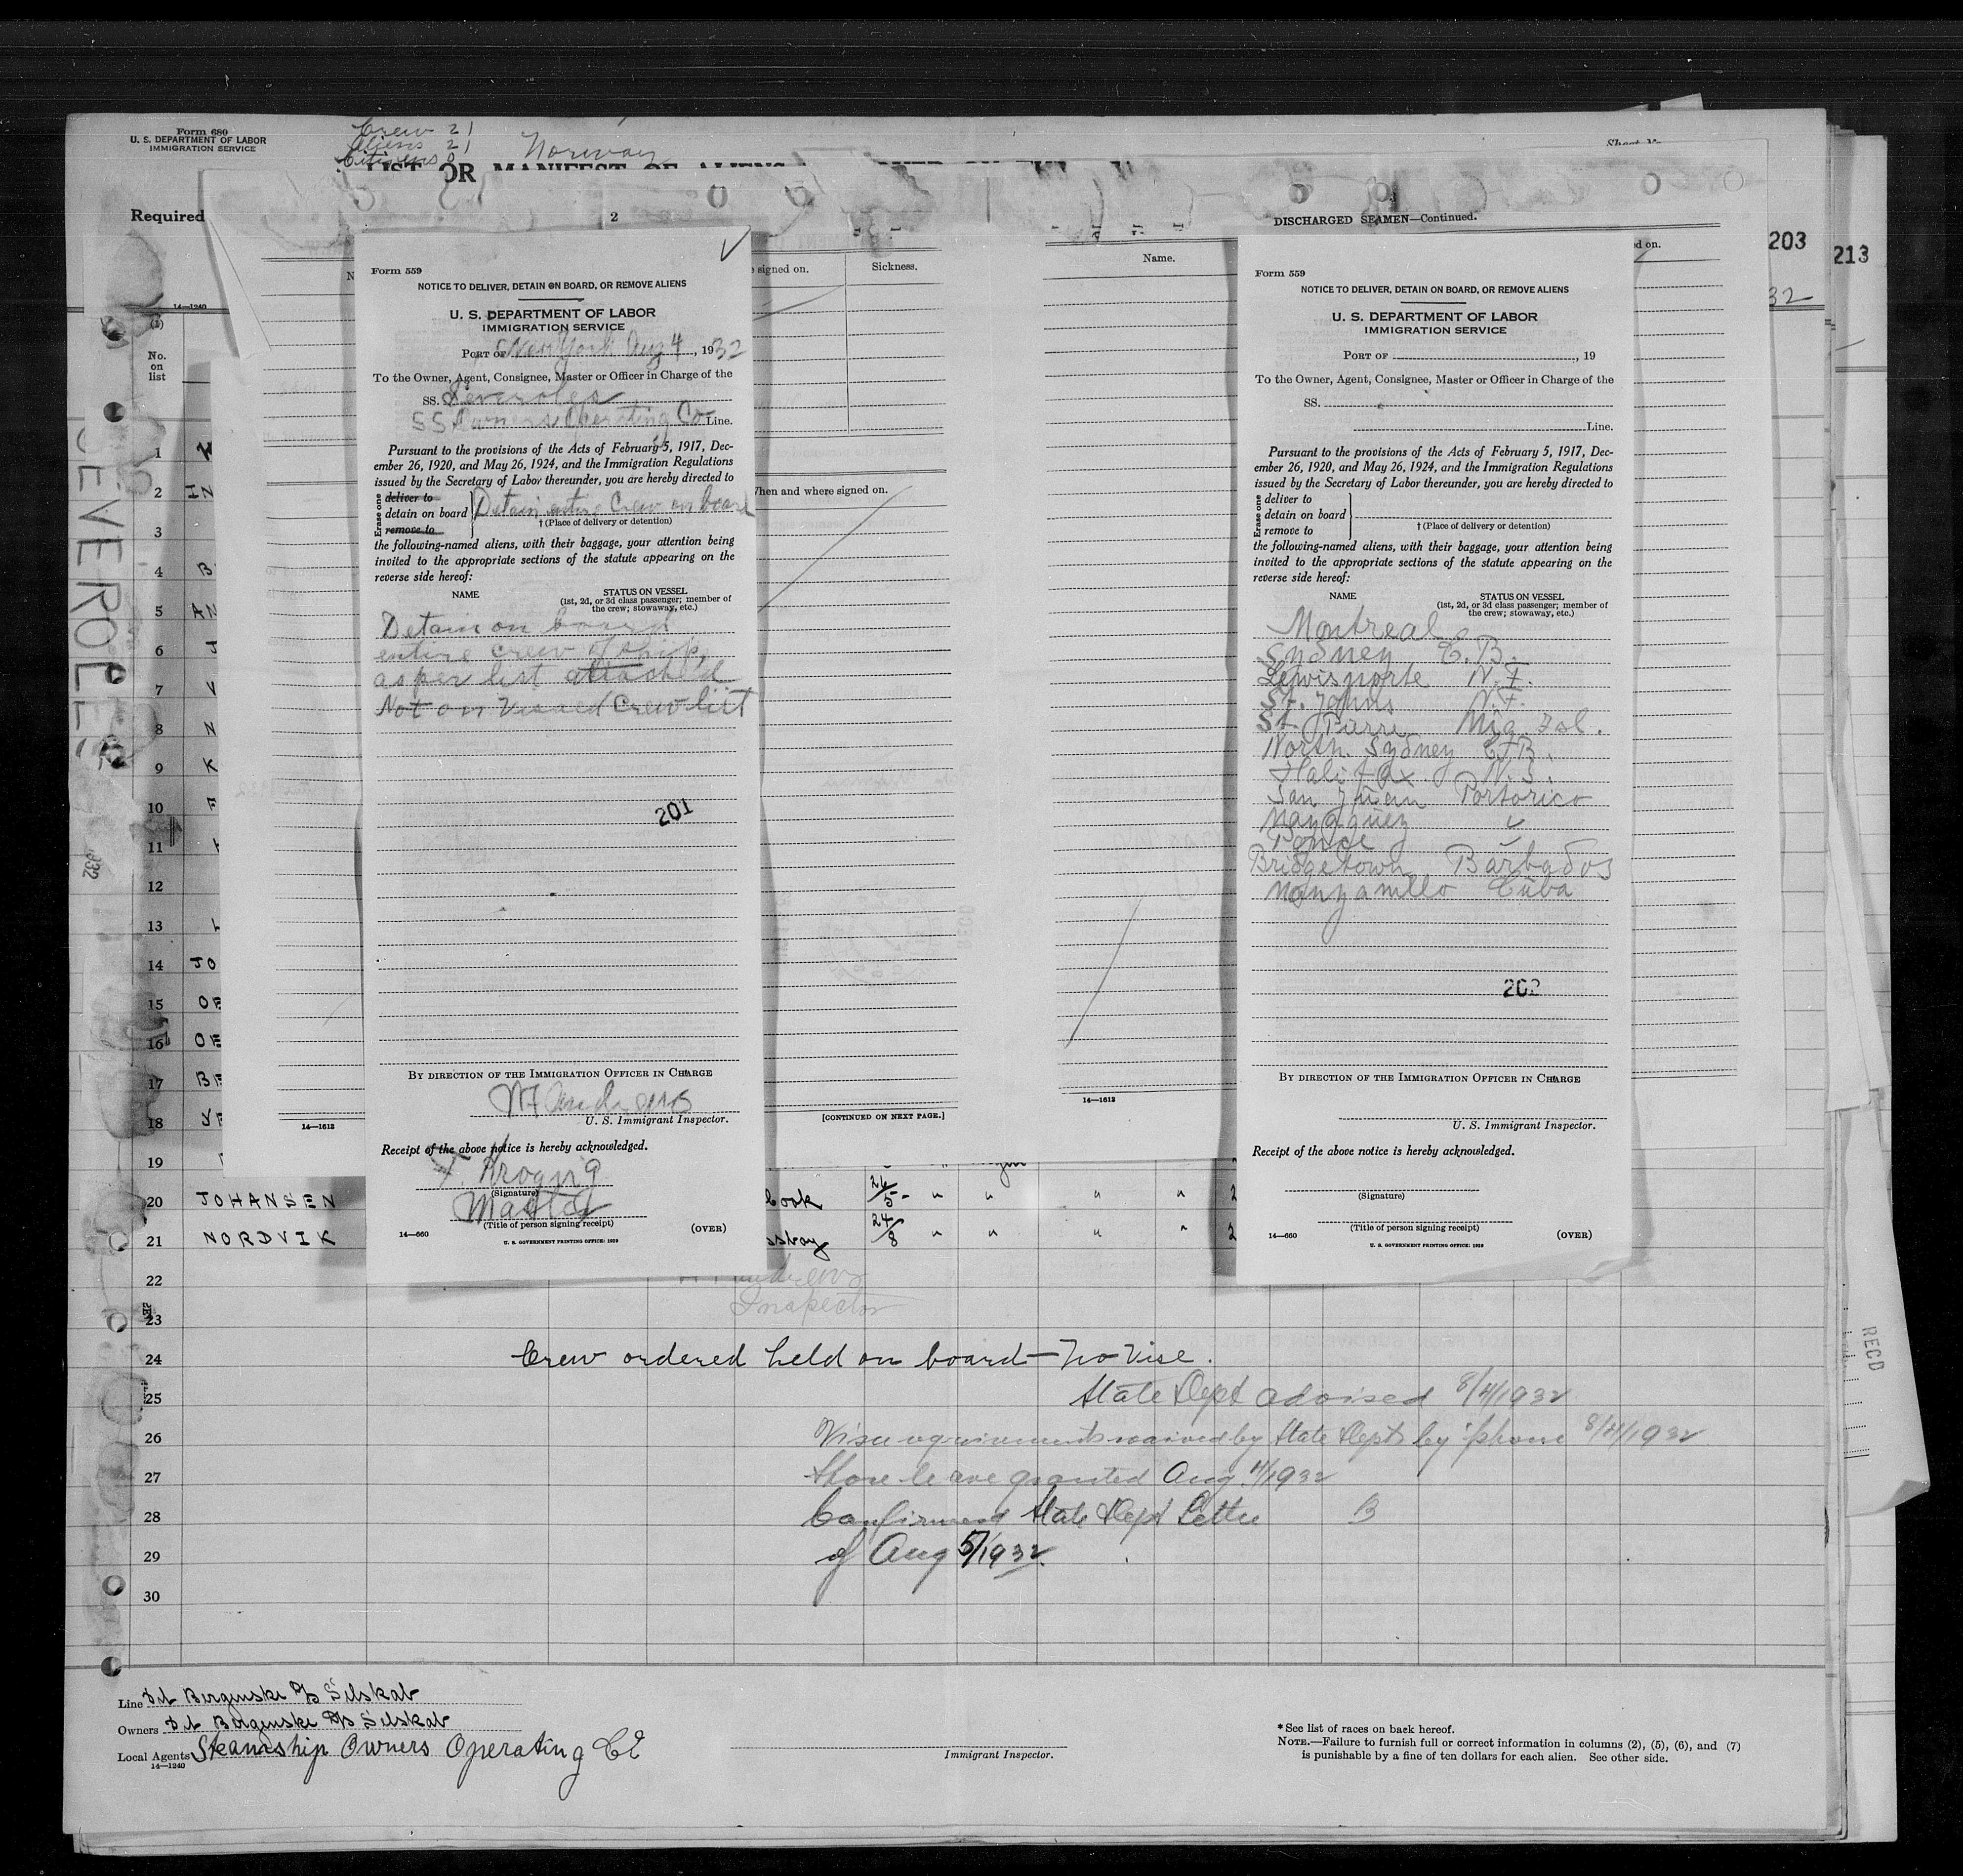 Form 680
U. S. DEPARTMENT OF LABOR
IMMIGRATION SERVICE
Crew 21
Aliens 21
Citizens 0
Norway
LIST OR MANIFEST OF ALIENS
Required
2
DISCHARGED SEAMEN—Continued.
203
213
32
14—1240
(1)
No.
on
list
signed on.
Sickness.
Name.
d on.
When and where signed on.
SEVEROLES
1932
Form 559
NOTICE TO DELIVER, DETAIN ON BOARD, OR REMOVE ALIENS
U. S. DEPARTMENT OF LABOR
IMMIGRATION SERVICE
PORT OF New York Aug 4, 1932
To the Owner, Agent, Consignee, Master or Officer in Charge of the
SS. Severoles
SS Owners Operating Co Line.
Pursuant to the provisions of the Acts of February 5, 1917, Dec-
ember 26, 1920, and May 26, 1924, and the Immigration Regulations
issued by the Secretary of Labor thereunder, you are hereby directed to
Erase one
deliver to
detain on board
remove to
Detain entire Crew on board
† (Place of delivery or detention)
the following-named aliens, with their baggage, your attention being
invited to the appropriate sections of the statute appearing on the
reverse side hereof:
NAME
STATUS ON VESSEL
(1st, 2d, or 3d class passenger; member of
the crew; stowaway, etc.)
Detain on board
entire crew of ship,
as per list attached
Not on visaed Crew list
201
BY DIRECTION OF THE IMMIGRATION OFFICER IN CHARGE
U. S. Immigrant Inspector.
Receipt of the above notice is hereby acknowledged.
(Signature)
Master
(Title of person signing receipt)
14—660
(OVER)
U. S. GOVERNMENT PRINTING OFFICE: 1929
14—1613
[CONTINUED ON NEXT PAGE.]
14—1613
Form 559
NOTICE TO DELIVER, DETAIN ON BOARD, OR REMOVE ALIENS
U. S. DEPARTMENT OF LABOR
IMMIGRATION SERVICE
PORT OF , 19
To the Owner, Agent, Consignee, Master or Officer in Charge of the
SS.
Line.
Pursuant to the provisions of the Acts of February 5, 1917, Dec-
ember 26, 1920, and May 26, 1924, and the Immigration Regulations
issued by the Secretary of Labor thereunder, you are hereby directed to
Erase one
deliver to
detain on board
remove to
† (Place of delivery or detention)
the following-named aliens, with their baggage, your attention being
invited to the appropriate sections of the statute appearing on the
reverse side hereof:
NAME
STATUS ON VESSEL
(1st, 2d, or 3d class passenger; member of
the crew; stowaway, etc.)
Montreal
Sydney C.B.
Lewisporte N.F.
St. Johns N.F.
St. Pierre Miq. Isl.
North Sydney C.B.
Halifax N.S.
San Juan Portorico
Mayaguez "
Ponce "
Bridgetown Barbados
Manzanillo Cuba
202
BY DIRECTION OF THE IMMIGRATION OFFICER IN CHARGE
U. S. Immigrant Inspector.
Receipt of the above notice is hereby acknowledged.
(Signature)
(Title of person signing receipt)
14—660
(OVER)
U. S. GOVERNMENT PRINTING OFFICE: 1929
1
2 IN
3
4 B
5 AN
6 J
7 V
8 N
9 K
10 F
11
12
13
14 JO
15
16
17 BE
18
19
20 JOHANSEN Cook 26/5 - " " " " 2
21 NORDVIK 24/8 " " " " 2
22
Inspector
23
24 Crew ordered held on board — No Vise.
25 State Dept advised 8/4/1932
26 Visa requirements waived by State Dept by 'phone 8/4/1932
27 Shore leave granted Aug. 4/1932
28 Confirmed State Dept Letter B
29 of Aug 5/1932.
30
RECD
Line Det Bergenske D/S Selskab
Owners Det Bergenske D/S Selskab
Local Agents Steamship Owners Operating Co
14—1240
Immigrant Inspector.
* See list of races on back hereof.
NOTE.—Failure to furnish full or correct information in columns (2), (5), (6), and (7)
is punishable by a fine of ten dollars for each alien. See other side.